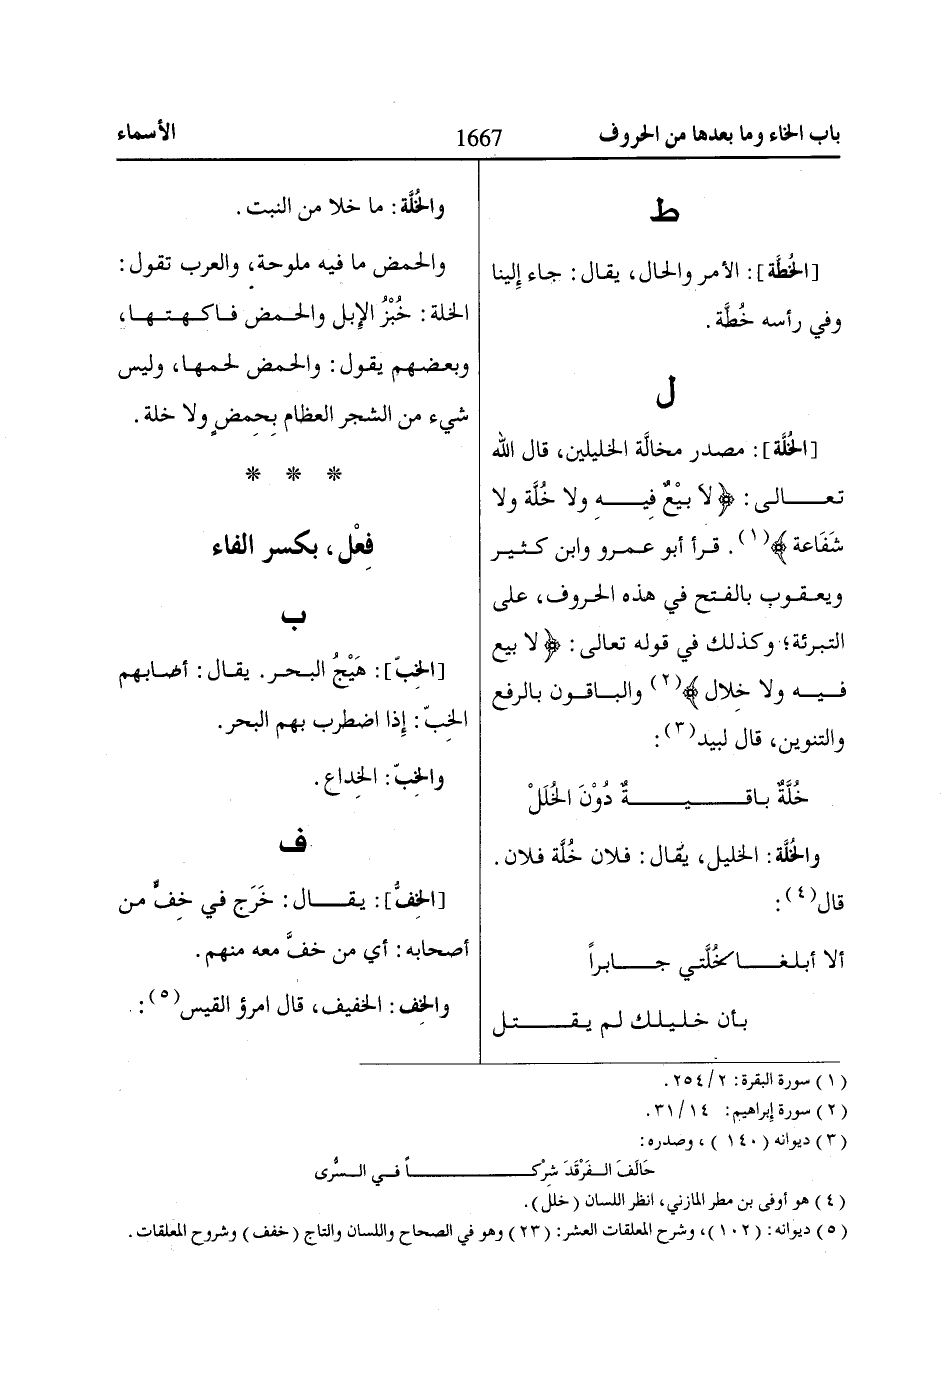 باب الخاء وما بعدها من الحروف
1667
الأسماء
ط
[الخُطَّة]: الأمر والحال، يقال: جاء إلينا
وفي رأسه خُطَّة.
ل
[الخُلَّة]: مصدر مخالَّة الخليلين، قال الله
تعـــالى: ﴿لاَ بَيْعٌ فِيــه ولا خُلَّة ولا
شَفَاعة﴾(١). قرأ أبو عمرو وابن كثير
ويعقوب بالفتح في هذه الحروف، على
التبرئة؛ وكذلك في قوله تعالى: ﴿لا بيع
فيـه ولا خِلال﴾(٢) والباقون بالرفع
والتنوين، قال لبيد(٣):
خُلَّةٌ باقـــيـــةٌ دُوْنَ الخُلَلْ
والخُلَّة: الخليل، يقال: فلان خُلَّة فلان.
قال(٤):
ألا أبلغـــا خُلَّتي جـــابراً
بأن خليلك لم يقـــتل
والخُلَّة: ما خلا من النبت.
والحمض ما فيه ملوحة، والعرب تقول:
الخلة: خُبْزُ الإبل والحمض فاكهتها،
وبعضهم يقول: والحمض لحمها، وليس
شيء من الشجر العظام بِحمضٍ ولا خلة.
* * *
فِعْل، بكسر الفاء
ب
[الخِبّ]: هَيْجُ البحر. يقال: أصابهم
الخِبّ: إذا اضطرب بهم البحر.
والخِبّ: الخِداع.
ف
[الخِفُّ]: يقـال: خَرَج في خِفٍّ من
أصحابه: أي من خفَّ معه منهم.
والخِف: الخفيف، قال امرؤ القيس(٥):
(١) سورة البقرة: ٢/٢٥٤.
(٢) سورة إبراهيم: ١٤/٣١.
(٣) ديوانه (١٤٠)، وصدره:
حَالَفَ الـفَرْقَدَ شِرْكـــاً فـي السُّرى
(٤) هو أوفى بن مطر المازني، انظر اللسان (خلل).
(٥) ديوانه: (١٠٢)، وشرح المعلقات العشر: (٢٣) وهو في الصحاح واللسان والتاج (خفف) وشروح المعلقات.